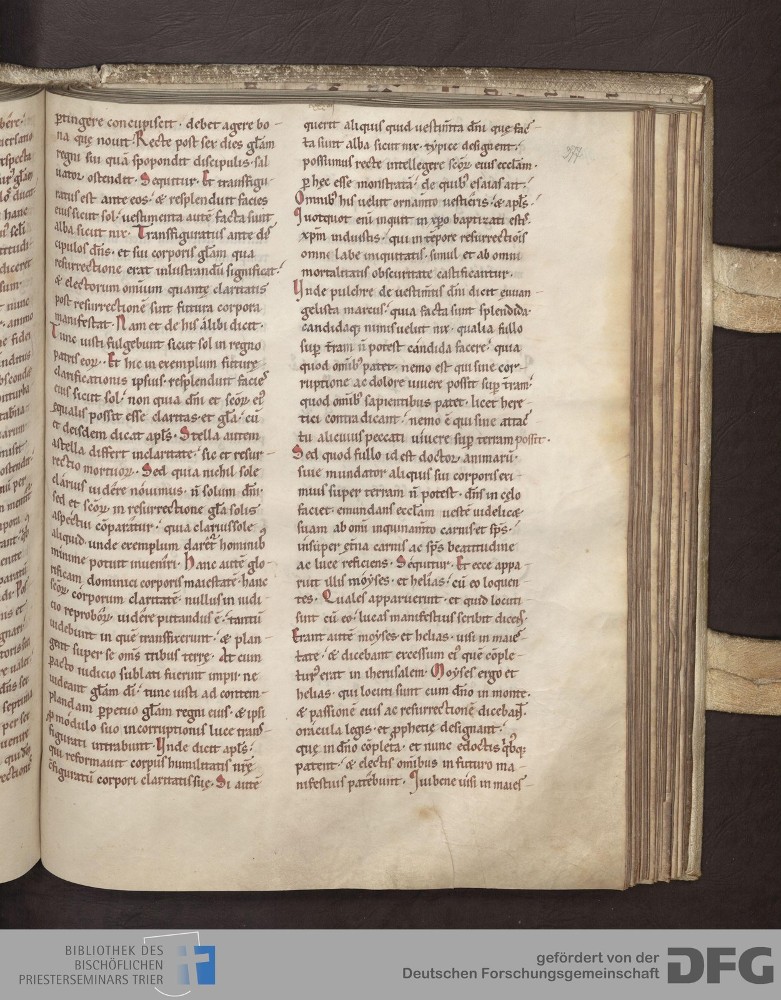 ꝑtingere concupiscit · debet agere bo-
na que nouit · Recte post sex dies gl̄am
regni sui quā spopondit discipulis sal
uator ostendit · Sequitur · Et transfigu-
ratus est ante eos · & resplenduit facies
eius sicut sol · uestimenta autē facta sunt
alba sicut nix · Transfiguratus ante dis
cipulos dn̄s · et sui corporis gl̄am qua
resurrectione erat inlustrandū significat ·
& electorum omnium quante claritatis
post resurrectionē sint futura corpora
manifestat · Nam et de his alibi dicit ·
Tunc iusti fulgebunt sicut sol in regno
patris eoꝝ · Et hic in exemplum future
clarificationis ipsius resplenduit facies
eius sicut sol · non quia dn̄i et scōꝝ eius
equalis possit esse claritas · et gl̄a · cū
et deisdem dicat apl̄s · Stella autem
astella differt inclaritate · sic et resur-
rectio mortuoꝝ · Sed quia nichil sole
clarius uidere nouimus · n̄ solum dn̄i ·
sed et scōꝝ in resurrectione gl̄a solis
aspectui cōparatur · quia clarius sole
aliquid unde exemplum daret hominib
minime potuit inueniri · Hanc autē glo-
rificam dominici corporis maiestatē · hanc
scōꝝ corporum claritatē nullus in iudi-
cio reproboꝝ uidere putandus ē · tantū
uidebunt in quē transfixerunt · & plan-
gent super se om̄s tribus terrę · At cum
ꝑacto iudicio sublati fuerint impii ne
uideant gl̄am dī · tunc iusti ad contem-
plandam ꝑpetuo gl̄am regni eius · & ipsi
ꝓ modulo suo incorruptionis luce trans-
figurati intrabunt · Unde dicit apl̄s ·
qui reformauit corpus humilitatis nr̄ę
cōfiguratū corpori claritatis suę · Si autē
querit aliquis quid uestim̄ta dn̄i que fac-
ta sunt alba sicut nix · typice designent ·
possumus recte intellegere scōꝝ eius eccl̄am ·
ꝑ hec esse monstratā · de quib; esaias ait ·
Omnib; his uelut ornamto uestieris · & apl̄s ·
Quotquot enī inquit in xp̄o baptizati estis
xp̄m induistis · qui in tēpore resurrectiōis
omni labe iniquitatis · simul et ab omni
mortalitatis obscuritate castificantur ·
Unde pulchre de uestim̄tis dn̄i dicit euuan-
gelista marcus · quia facta sunt splendida ·
candidaq; nimis uelut nix · qualia fullo
suꝑ tr̄am n̄ potest candida facere · quia
quod om̄ib; patet · nemo est qui sine cor-
ruptione ac dolore uiuere possit suꝑ tr̄am ·
quod om̄ib; sapientibus patet · licet here-
tici contra dicant · nemo ē qui sine attac
tu alicuius peccati uiuere suꝑ terram possit ·
Sed quod fullo id est doctor animarū ·
siue mundator aliquis sui corporis eri-
mius super terram n̄ potest · dn̄s in cęlo
faciet · emundans eccl̄am uestē uidelicę
suam ab om̄i inquinam̄to carnis et sp̄s ·
insuper et̄na carnis ac sp̄s beatitudine
ac luce reficiens · Sequitur · Et ecce appa-
ruit illis moyses · et helias · cū eo loquen-
tes · Quales apparuerunt · et quid locuti
sunt cū eo · lucas manifestius scribit dicens ·
Erant autē moyses · et helias · uisi in maies-
tate · & dicebant excessum ei quē cōple-
tur erat in iherusalem · Moyses ergo et
helias · qui locuti sunt cum dn̄o in monte ·
& passionē eius ac resurrectionē dicebant ·
oracula legis · et ꝓphetię designant ·
que in dn̄o cōpleta · et nunc edoctis qbq;
patent · & electis omībus in futuro ma-
nifestius patebunt · Qui bene uisi in maies-
BIBLIOTHEK DES
BISCHÖFLICHEN
PRIESTERSEMINARS TRIER
gefördert von der
Deutschen Forschungsgemeinschaft
DFG